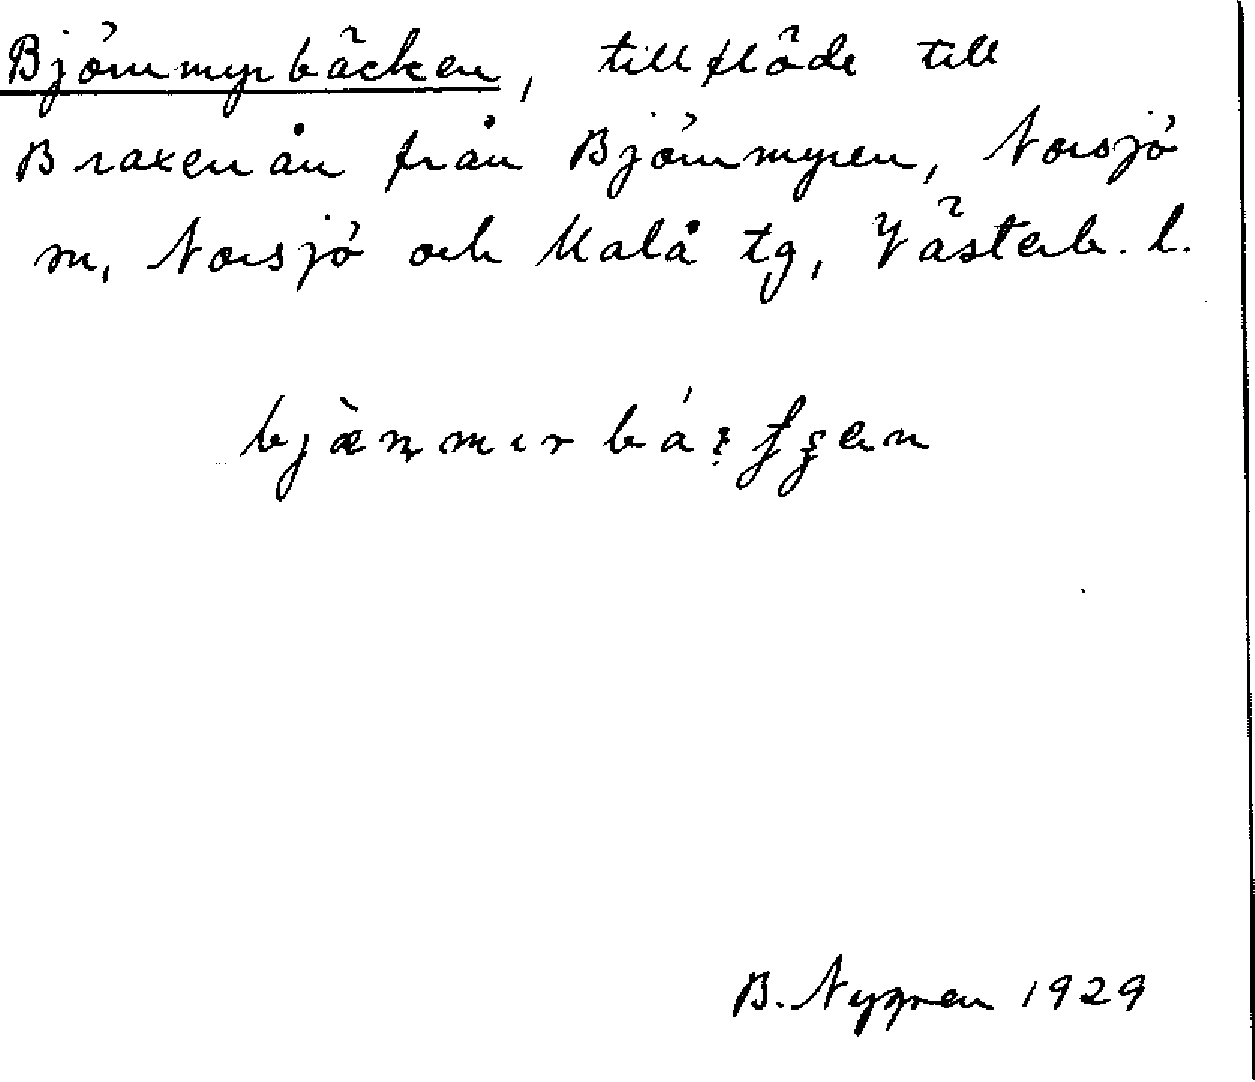 Björnmyrbäcken, tillflöde till
Braxenån från Björnmyren, Norsjö
sn, Norsjö och Malå tg, Västerb. l.
B. Nygren 1929